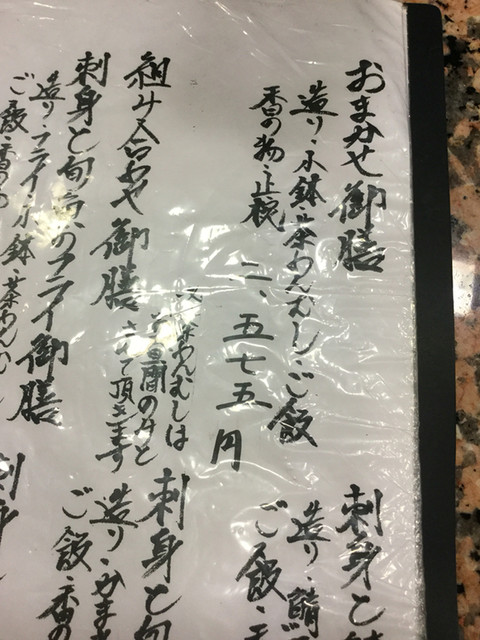 おまかせ御膳
造り・小鉢・茶わんむし
ご飯
香の物・止椀
二、五七五円
組み合わせ御膳
茶わんむしは
夕と
させて頂きます
刺身と旬魚のフライ御膳
造り・フライ・小鉢・茶わん
ご飯・香の
刺身と
造り・
ご飯・
刺身と旬
造り・かま
ご飯・香の
刺身